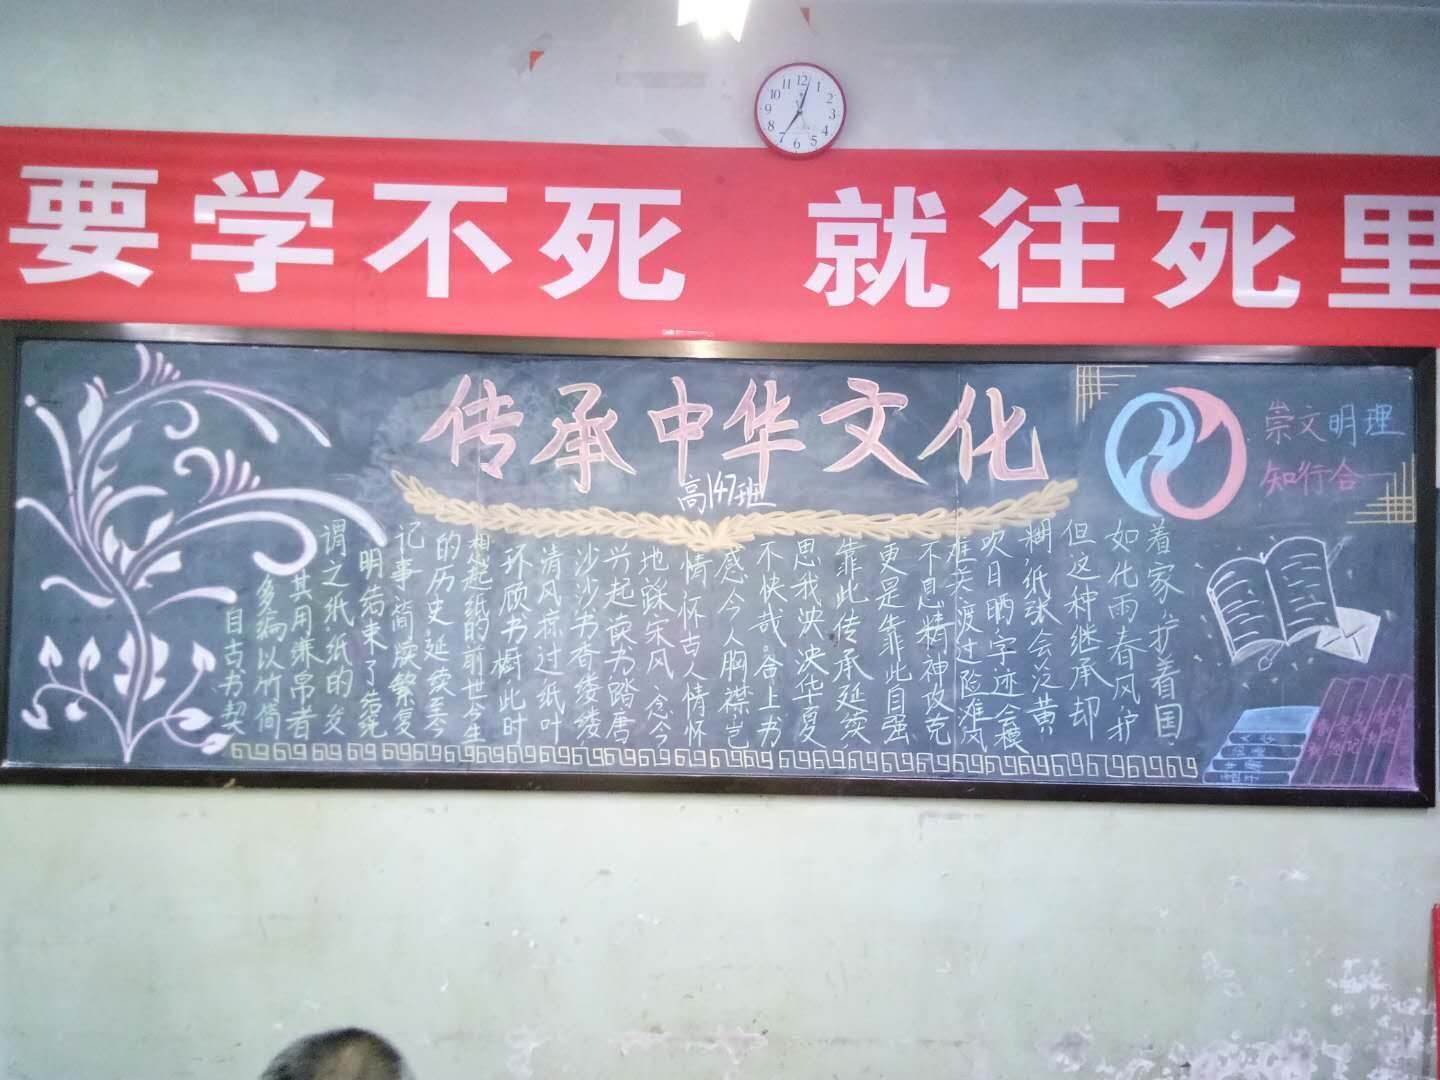 12
1
2
3
4
5
6
7
8
9
10
11
要学不死 就往死里
传承中华文化
高147班
崇文明理
知行合一
自古书契
多编以竹简
其用缣帛者
谓之纸,纸的发
明结束了结绳
记事简牍繁复
的历史延续至今
想起纸的前世今生
环顾书橱此时
清风掠过纸叶
沙沙书香缕缕
兴起嵌书踏唐
地踩宋风,念今
情怀古人情怀
感今人胸襟岂
不快哉.合上书
思我泱泱华夏
靠此传承延续
更是靠此自强
不息精神攻克
难关渡过险滩风
吹日晒字迹会模
糊,纸张会泛黄
但这种继承却
如化雨春风护
着家,护着国